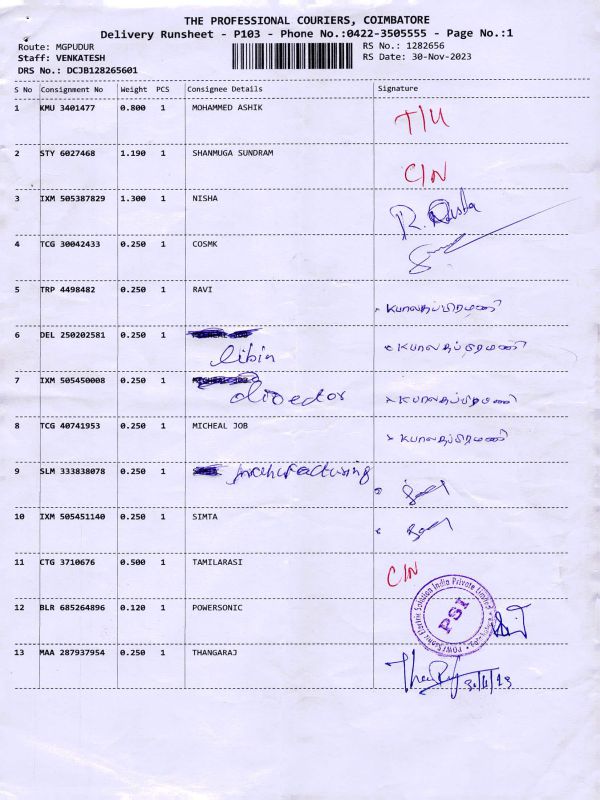 THE PROFESSIONAL COURIERS, COIMBATORE
Delivery Runsheet - P103 - Phone No.:0422-3505555 - Page No.:1
Route: MGPUDUR RS No.: 1282656
Staff: VENKATESH RS Date: 30-Nov-2023
DRS No.: DCJB128265601
S No Consignment No Weight PCS Consignee Details Signature
1 KMU 3401477 0.800 1 MOHAMMED ASHIK T/U
2 STY 6027468 1.190 1 SHANMUGA SUNDRAM C/N
3 IXM 505387829 1.300 1 NISHA R. Nisha
4 TCG 30042433 0.250 1 COSMK
5 TRP 4498482 0.250 1 RAVI
6 DEL 250202581 0.250 1 libin
7 IXM 505450008 0.250 1
8 TCG 40741953 0.250 1 MICHEAL JOB
9 SLM 333838078 0.250 1
10 IXM 505451140 0.250 1 SIMTA
11 CTG 3710676 0.500 1 TAMILARASI C/N
12 BLR 685264896 0.120 1 POWERSONIC PSI
13 MAA 287937954 0.250 1 THANGARAJ